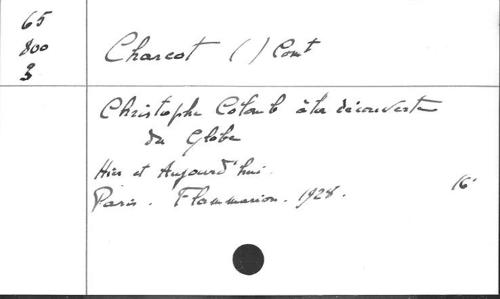 65
800
3
Charcot ( ) Comt
Christophe Colomb à la découverte
du Globe
Hier et Aujourd'hui.
Paris. Flammarion. 1928.
16°